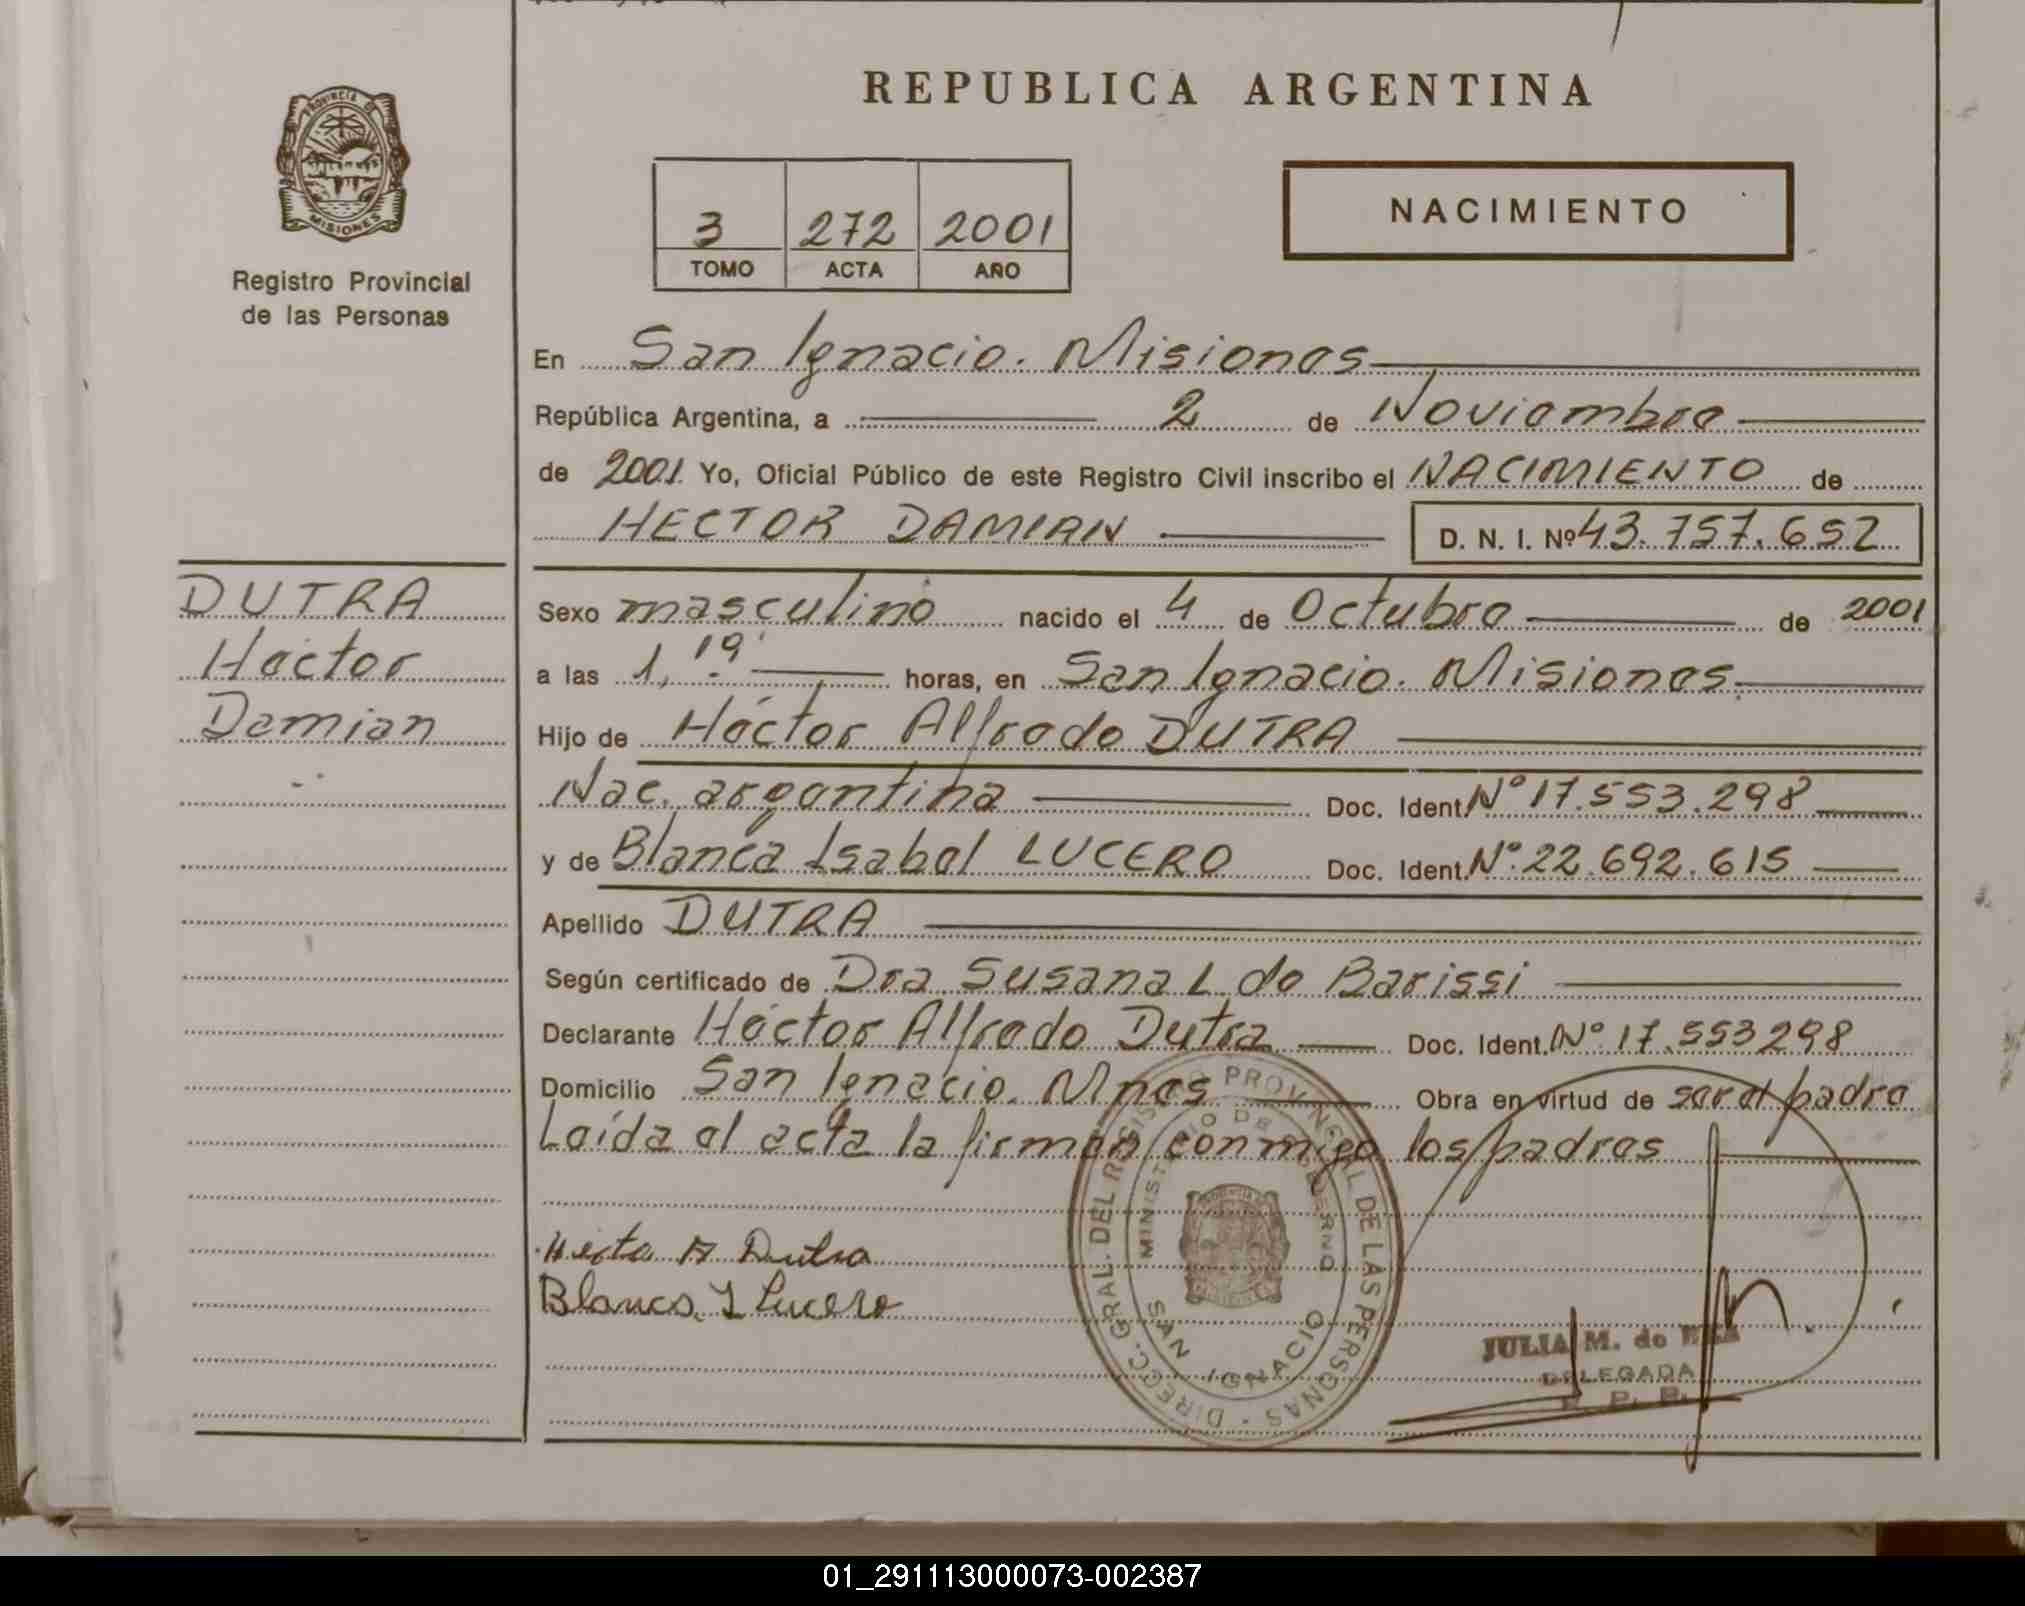 REPUBLICA ARGENTINA
PROVINCIA DE
MISIONES
Registro Provincial
de las Personas
3 272 2001
TOMO ACTA AÑO
NACIMIENTO
En San Ignacio. Misiones
República Argentina, a 2 de Noviembre
de 2001 Yo, Oficial Público de este Registro Civil inscribo el NACIMIENTO de
HECTOR DAMIAN D. N. I. Nº 43.757.652
DUTRA
Héctor
Damian
Sexo masculino nacido el 4 de Octubre de 2001
a las 1,19 horas, en San Ignacio. Misiones.
Hijo de Héctor Alfredo DUTRA
Nac. argentina Doc. Ident. Nº 17.553.298
y de Blanca Isabel LUCERO Doc. Ident. Nº 22.692.615
Apellido DUTRA
Según certificado de Dra Susana L. de Barissi
Declarante Héctor Alfredo Dutra Doc. Ident. Nº 17.553298
Domicilio San Ignacio. Mnes Obra en virtud de ser el padre
Leída el acta la firman conmigo los padres
A Dutra
Blanca I Lucero
DIRECC. GRAL. DEL REGISTRO PROVINCIAL DE LAS PERSONAS
MINISTERIO DE GOBIERNO
SAN IGNACIO
JULIA M. de
DELEGADA
R. P. P.
01_291113000073-002387